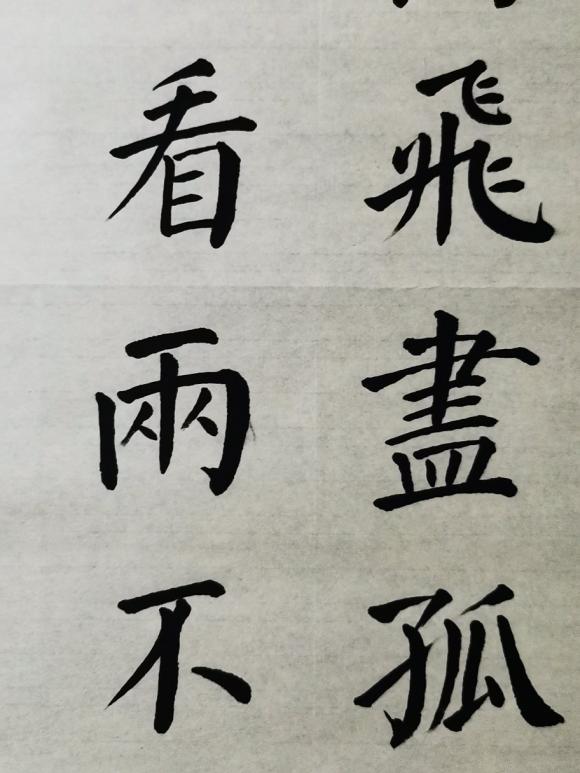 飛盡孤
看兩不